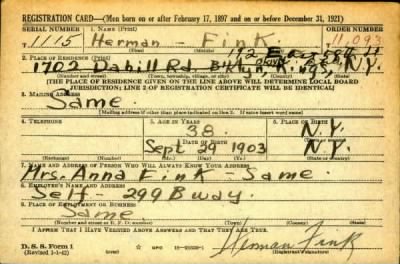 REGISTRATION CARD—(Men born on or after February 17, 1897 and on or before December 31, 1921)
SERIAL NUMBER 1. NAME (Print) ORDER NUMBER
1115 Herman - Fink 11,093
(First) (Middle) (Last)
2. PLACE OF RESIDENCE (Print)
1702 Dahill Rd. Bklyn, N.Y.
(Number and street) (Town, township, village, or city) (County) (State)
[THE PLACE OF RESIDENCE GIVEN ON THE LINE ABOVE WILL DETERMINE LOCAL BOARD
JURISDICTION; LINE 2 OF REGISTRATION CERTIFICATE WILL BE IDENTICAL]
3. MAILING ADDRESS
Same.
[Mailing address if other than place indicated on line 2. If same insert word same]
4. TELEPHONE 5. AGE IN YEARS 6. PLACE OF BIRTH
38 N.Y.
DATE OF BIRTH (Town or county)
Sept 29 1903 N.Y.
(Exchange) (Number) (Mo.) (Day) (Yr.) (State or country)
7. NAME AND ADDRESS OF PERSON WHO WILL ALWAYS KNOW YOUR ADDRESS
Mrs. Anna Fink - Same.
8. EMPLOYER'S NAME AND ADDRESS
Self - 299 Bway.
9. PLACE OF EMPLOYMENT OR BUSINESS
Same
(Number and street or R. F. D. number) (Town) (County) (State)
I AFFIRM THAT I HAVE VERIFIED ABOVE ANSWERS AND THAT THEY ARE TRUE.
D. S. S. Form 1 GPO Herman Fink
(Revised 1-1-42) (over) (Registrant's signature)